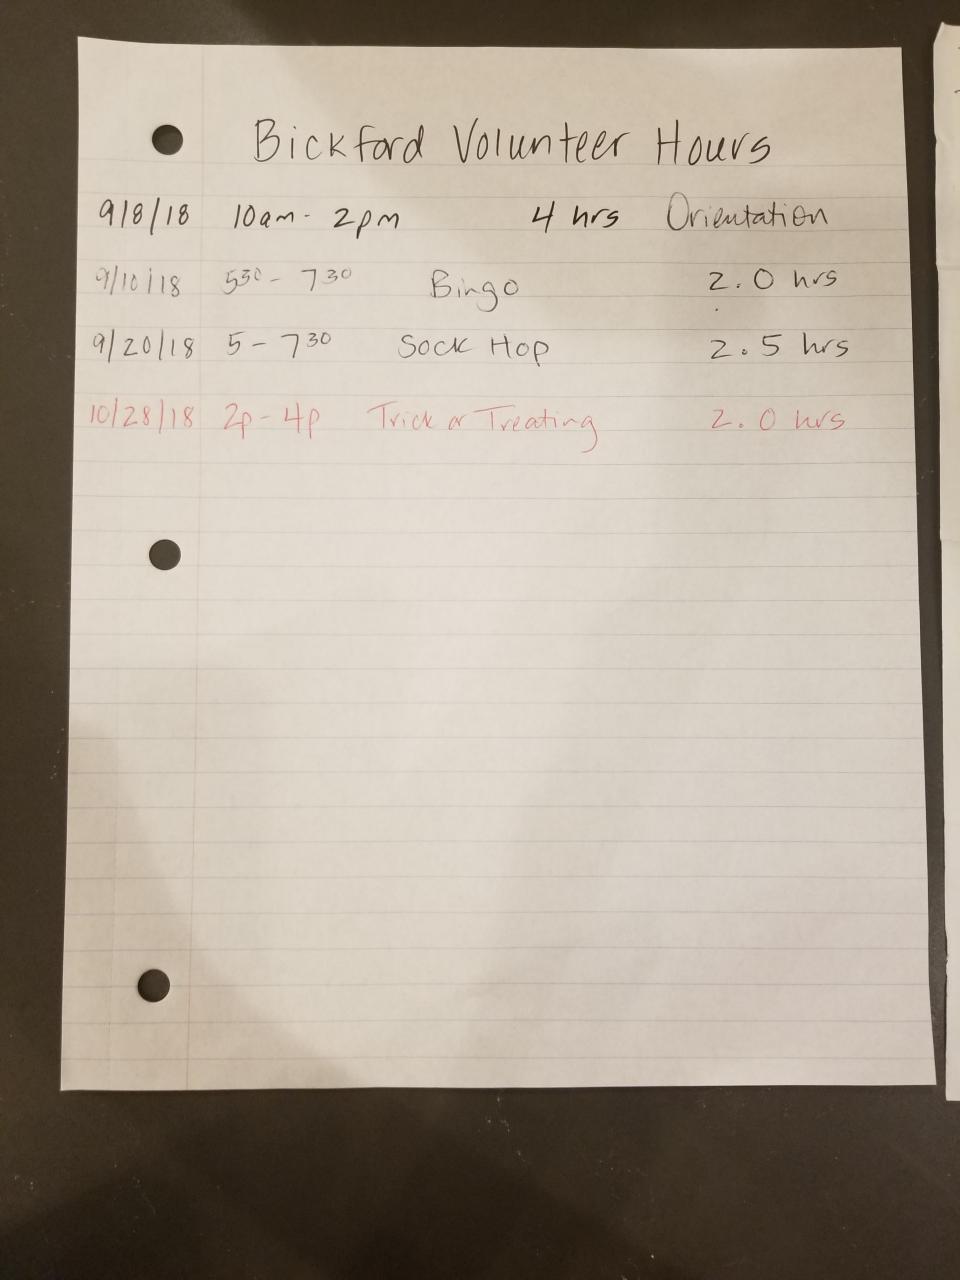 Bickford Volunteer Hours
9/8/18 10am - 2pm 4 hrs Orientation
9/10/18 5³⁰ - 7³⁰ Bingo 2.0 hrs
9/20/18 5 - 7³⁰ Sock Hop 2.5 hrs
10/28/18 2p - 4p Trick or Treating 2.0 hrs